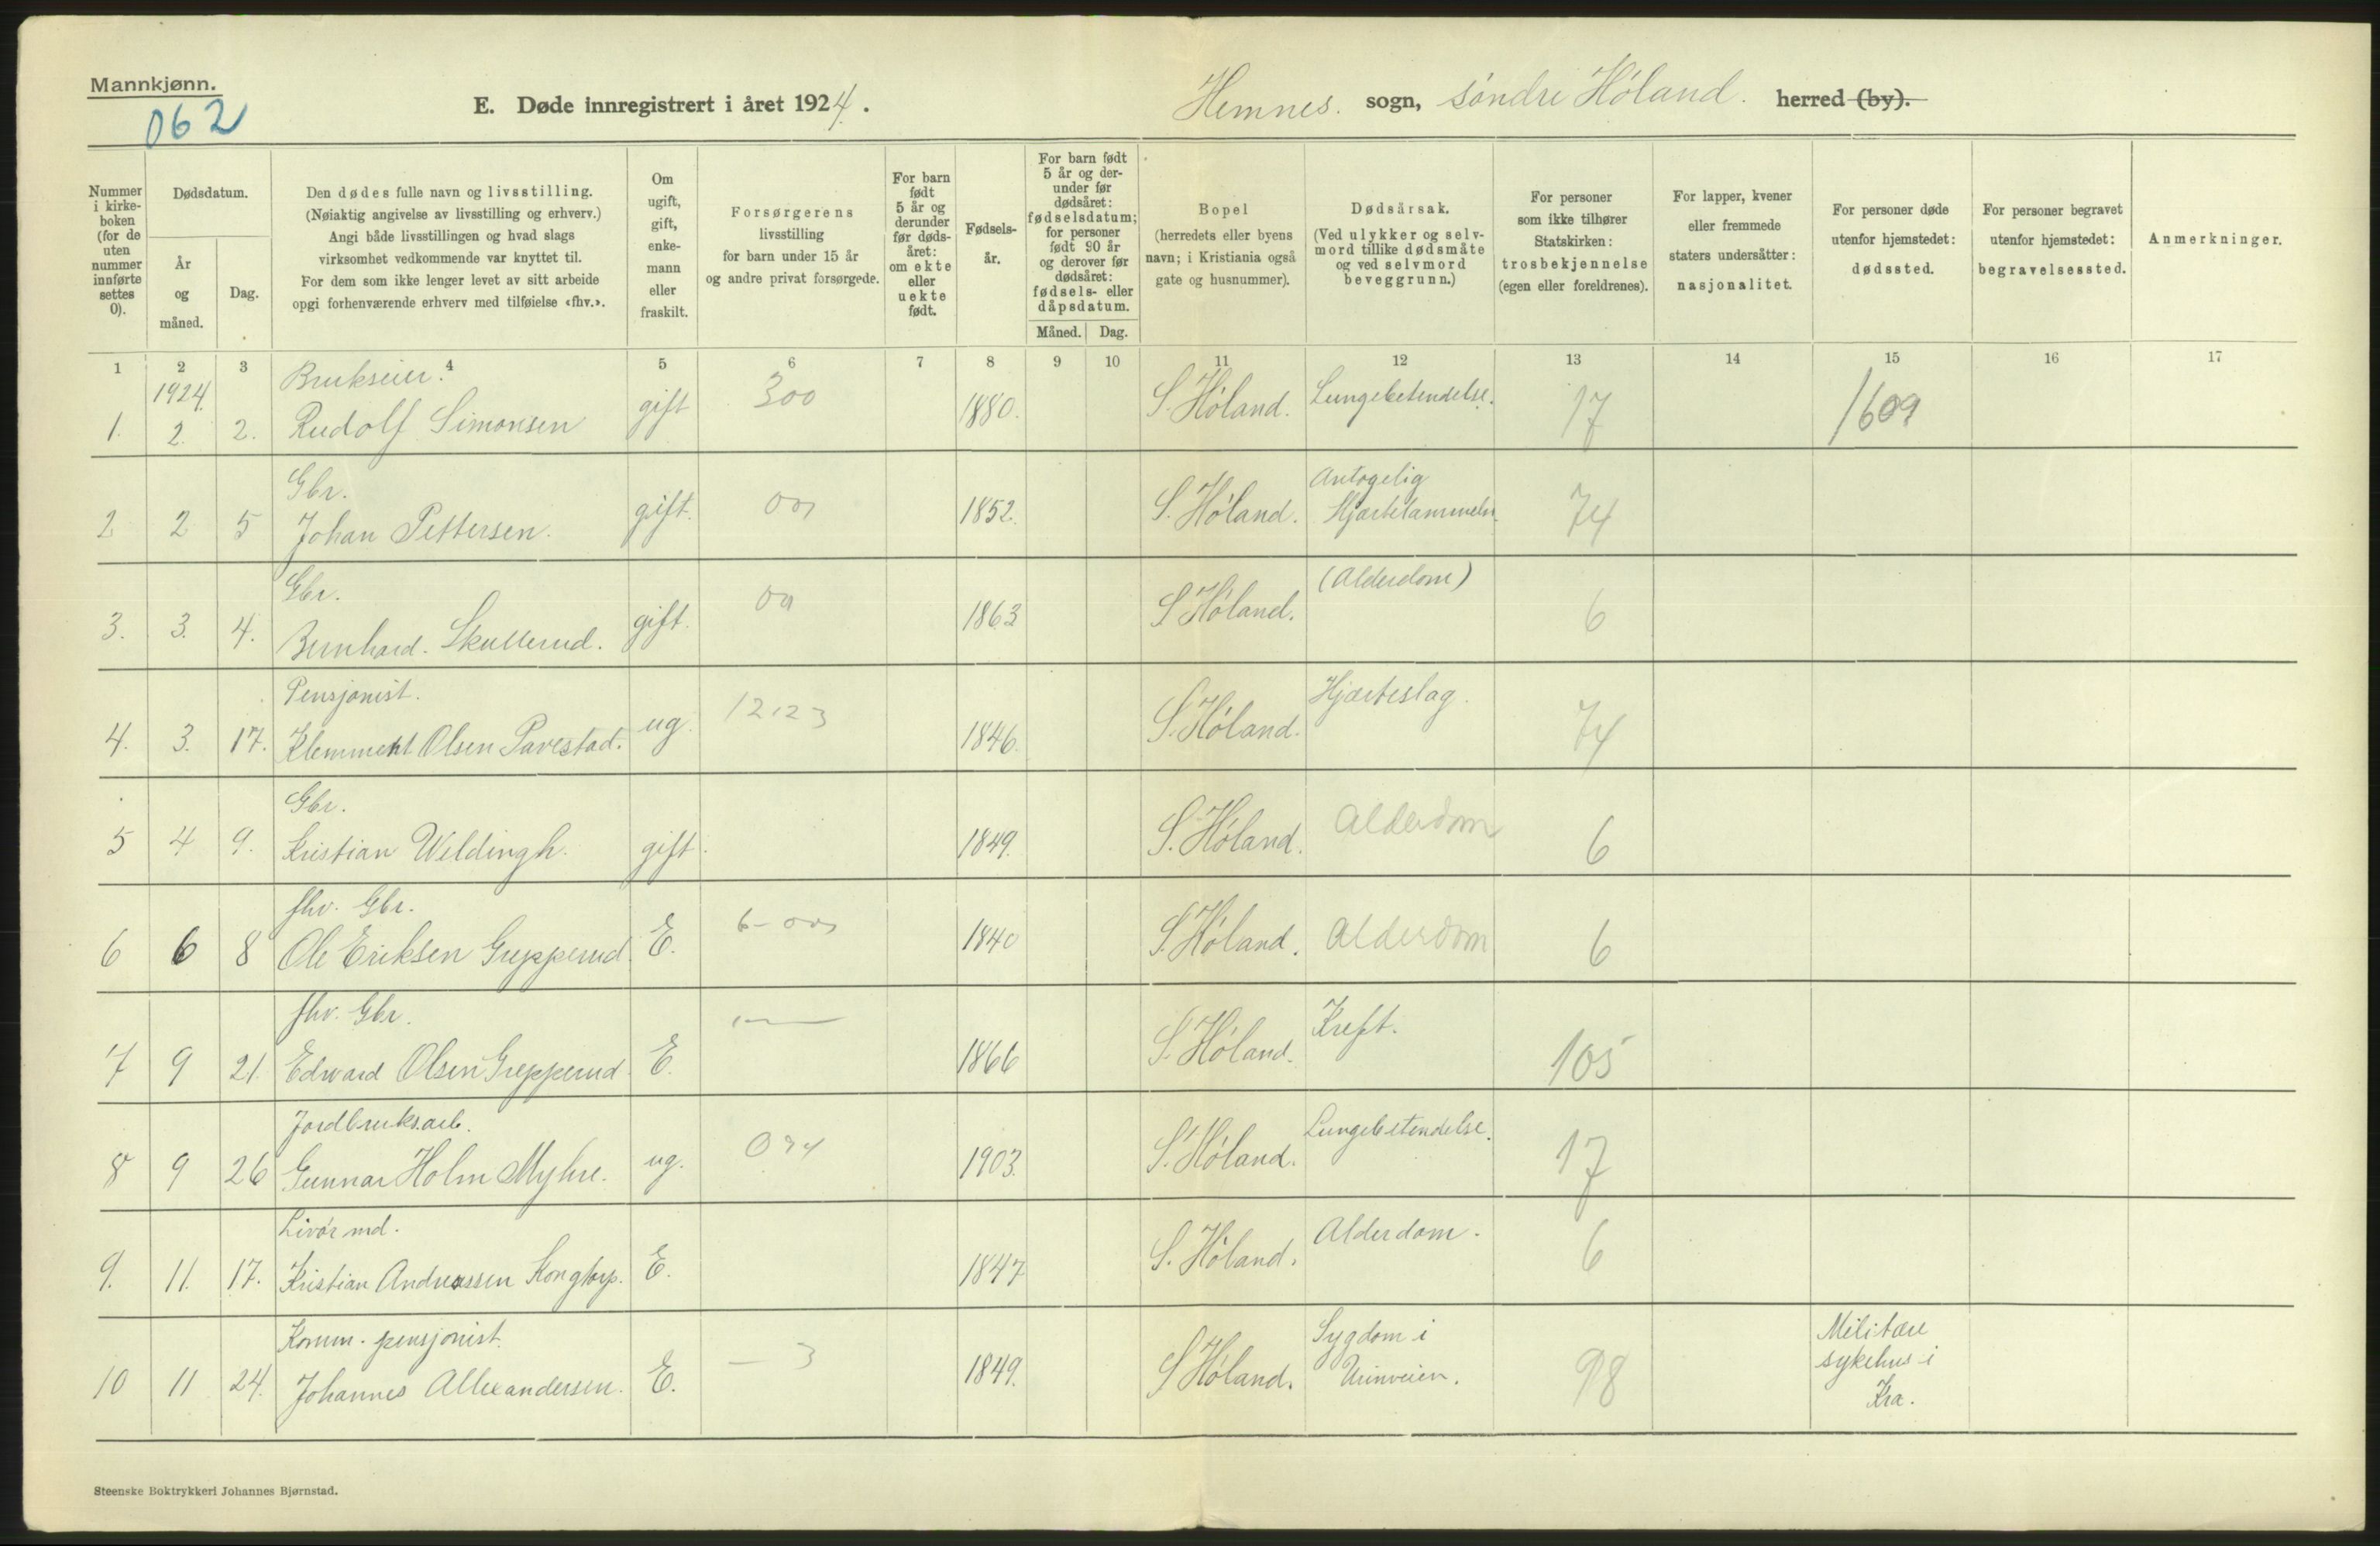 Mannkjønn.
062
E. Døde innregistrert i året 1924.
Hemnes. sogn, søndre Høland. herred (by).
Nummer i kirke-boken (for de uten nummer innførte settes 0).
Dødsdatum.
År og måned.
Dag.
Den dødes fulle navn og livsstilling.
(Nøiaktig angivelse av livsstilling og erhverv.)
Angi både livsstillingen og hvad slags
virksomhet vedkommende var knyttet til.
For dem som ikke lenger levet av sitt arbeide
opgi forhenværende erhverv med tilføielse «fhv.».
Om ugift, gift, enke-mann eller fraskilt.
Forsørgerens
livsstilling
for barn under 15 år
og andre privat forsørgede.
For barn født 5 år og derunder før døds-året: om ekte eller uekte født.
Fødsels-år.
For barn født 5 år og der-under før dødsåret: fødselsdatum; for personer født 90 år og derover før dødsåret: fødsels- eller dåpsdatum.
Måned. Dag.
Bopel
(herredets eller byens
navn; i Kristiania også
gate og husnummer).
Dødsårsak.
(Ved ulykker og selv-
mord tillike dødsmåte
og ved selvmord
beveggrunn.)
For personer
som ikke tilhører
Statskirken:
trosbekjennelse
(egen eller foreldrenes).
For lapper, kvener
eller fremmede
staters undersåtter:
nasjonalitet.
For personer døde
utenfor hjemstedet:
dødssted.
For personer begravet
utenfor hjemstedet:
begravelsessted.
Anmerkninger.
1 2 3 4 5 6 7 8 9 10 11 12 13 14 15 16 17
1924. Brukseier.
1. 2. 2. Rudolf Simonsen gift 300 1880. S. Høland. Lungebetendelse. 17 1609
Gbr. Antagelig
2 2 5 Johan Pettersen. gift. 1852. S. Høland. Hjertelammelse. 74
Gbr. (Alderdom)
3. 3. 4. Bernhard. Skullerud. gift. 1863 S Høland. 6
Pensjonist. Hjerteslag.
4. 3. 17. Klemment Olsen Pavestad. ug. 12123 1846. S. Høland. 74
Gbr.
5 4 9. Kristian Weldingh. gift. 1849. S. Høland. Alderdom 6
fhv. Gbr.
6 6 8 Ole Eriksen Grepperud. E. 1840 S. Høland. Alderdom 6
fhv. Gbr. Kreft.
7 9 21. Edward Olsen Grepperud. E. 1866 S. Høland. 105
Jordbruksarb. Lungebetendelse.
8 9 26 Gunnar Holm Myhre. ug. 1903. S. Høland. 17
Livørmd. Alderdom.
9. 11. 17. Kristian Andreassen Kongtorp. E. 1847 S. Høland. 6
Komm. pensjonist. Sygdom i Militære
10 11 24. Johannes Allexandersen. E. – 3 1849. S Høland. Urinveien. 98 sykehus i
Kra.
Steenske Boktrykkeri Johannes Bjørnstad.